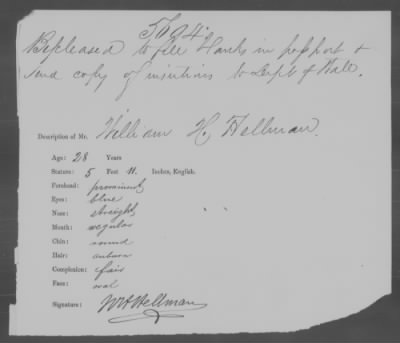 5694.
Be pleased to fill blanks in passport &
send copy of insertions to Dept of State.
Description of Mr. William H. Hellman.
Age: 28 Years
Stature: 5 Feet 11. Inches, English.
Forehead: prominent
Eyes: blue
Nose: straight
Mouth: regular
Chin: round
Hair: auburn
Complexion: fair
Face: oval
Signature: WH Hellman